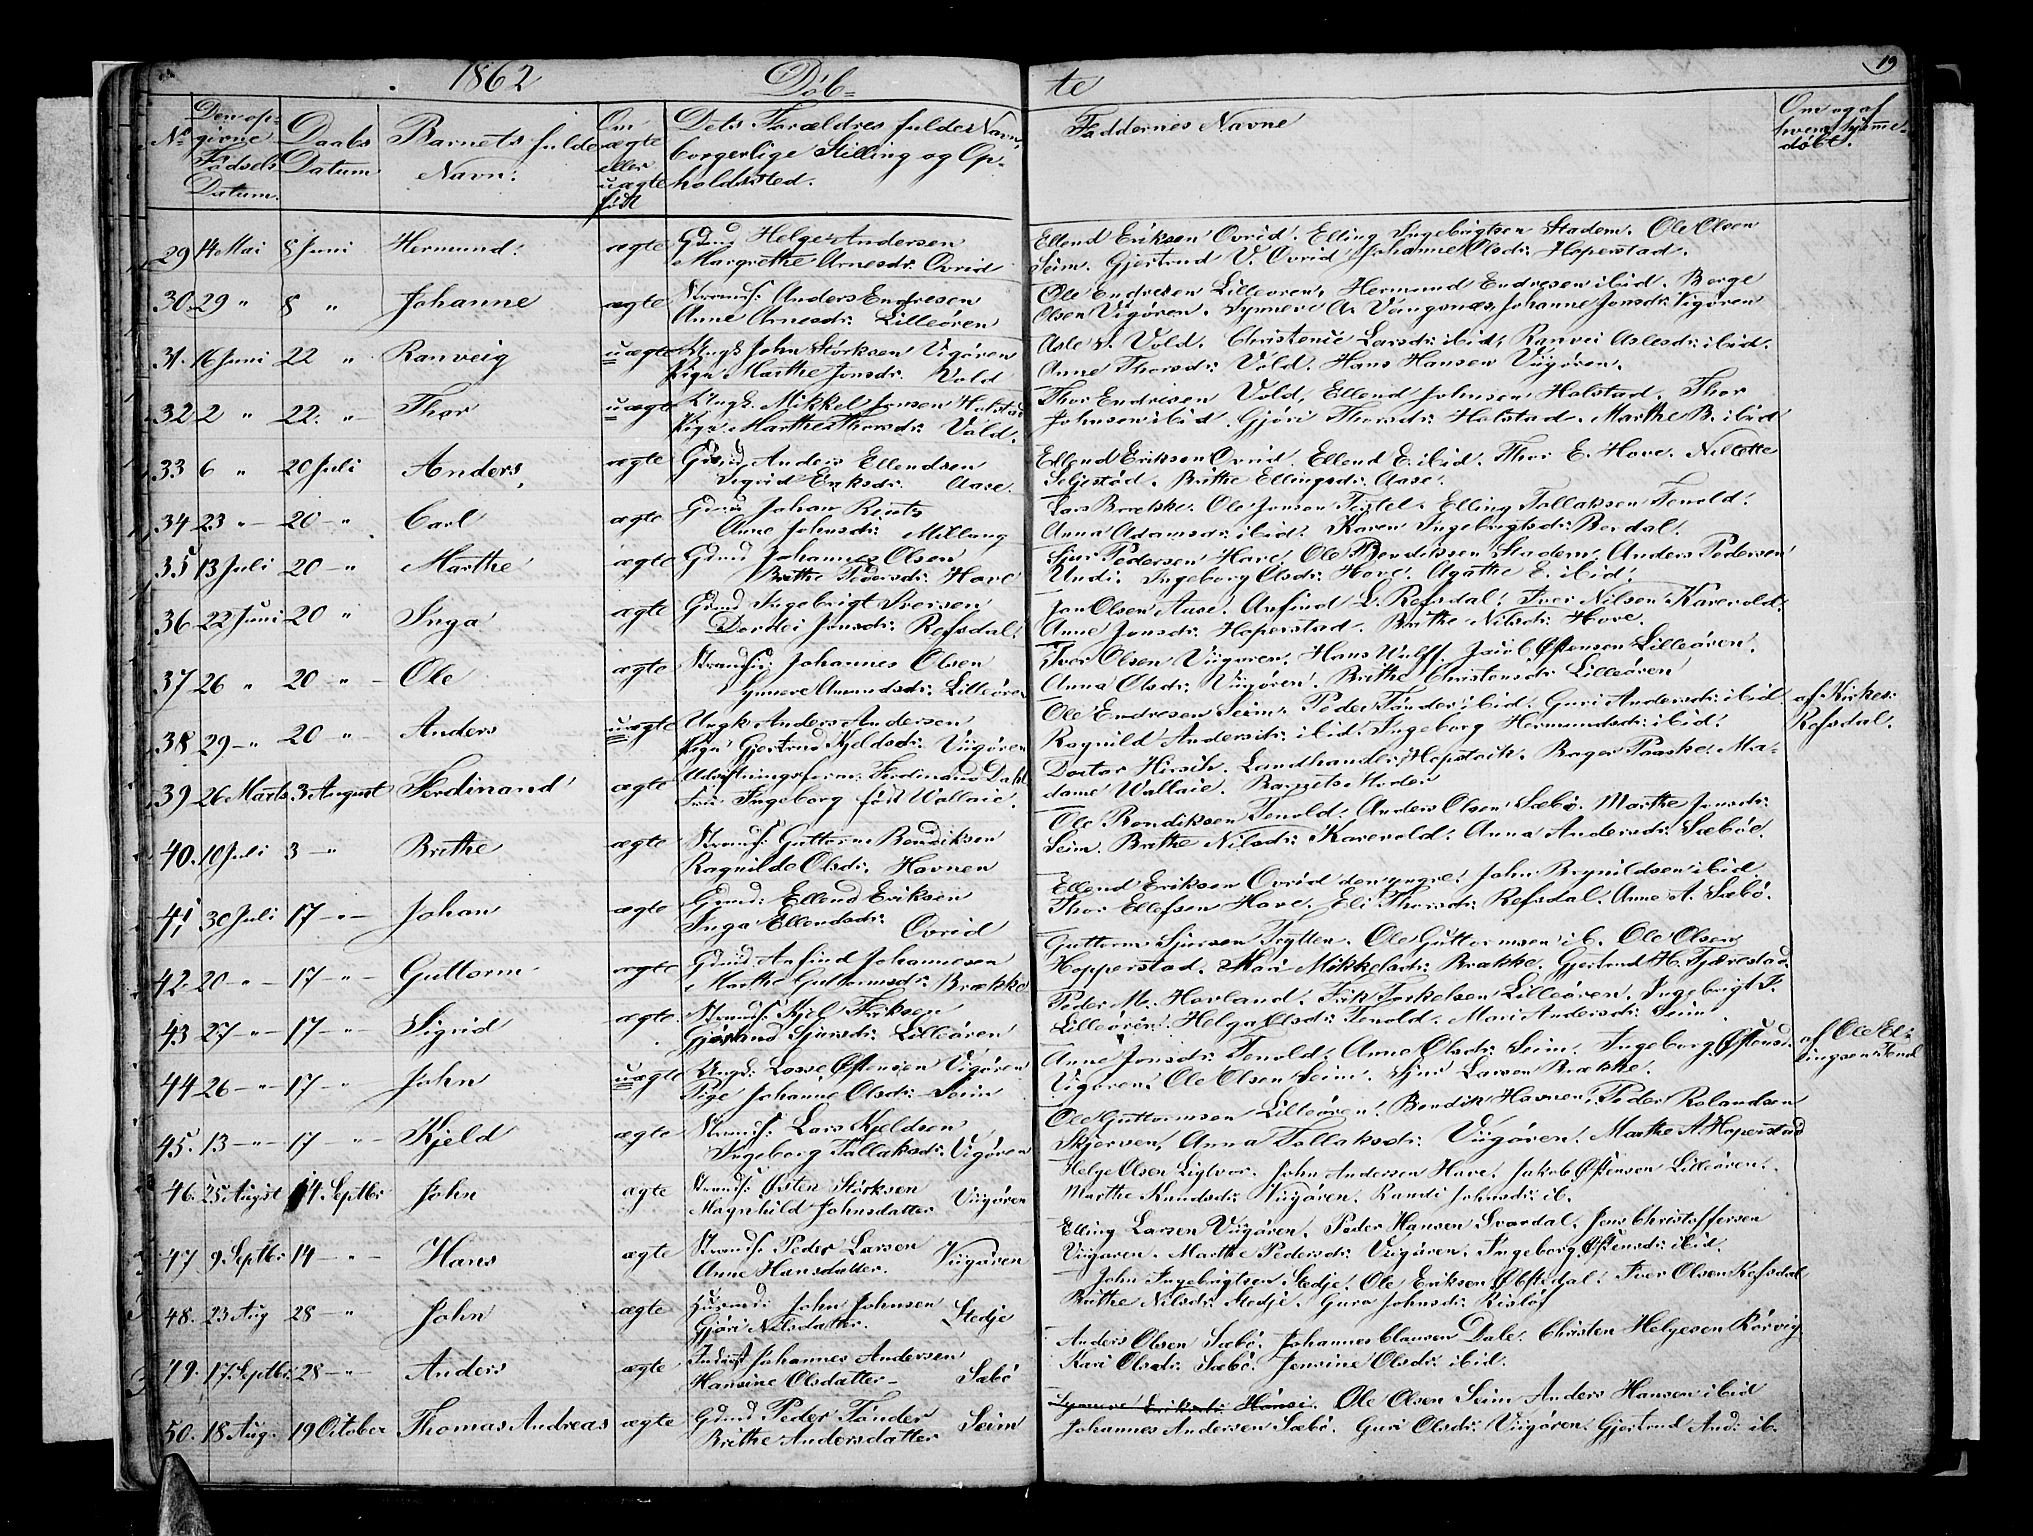 1862 Døb- te 19
No Den opgivne Fødsels Datum. Daabs Datum Barnets fulde Navn. Om ægte eller uægte født Dets Forældres fulde Navn, borgerlige Stilling og Opholdssted. Faddernes Navne Om og af hvem hjemmedøbt.
29 14 Mai 8 Juni Hermund. ægte Gdmd Helge Andersen Ellend Eriksen Ovrid. Elling Ingebrigtsen Stadem. Ole Olsen
Margrethe Arnesdr: Ovrid Seim. Gjertrud V. Ovrid Johanne Olsdr: Hoperstad.
30. 29 " 8 " Johanne ægte Strands: Anders Endresen Ole Endresen Lilleøren, Hermund Endresen ibid. Børge
Anne Arnesdr: Lilleøren Olsen Vigøren. Synneve A. Vangsnæs, Johanne Jonsdr: Vigøren
31. 16 Juni 22 " Ranveig uægte Ungk John Størksen Vigøren Asle S. Vold. Christence Larsdr: ibid, Ranvei Aslesdr: ibid.
Pige Marthe Jonsdr. Vold Anne Thorsdr: Vold. Hans Hansen Viigøren.
32 2 " 22. " Thor uægte Ungk. Mikkel Jensen Holstad Thor Endresen Vold, Ellend Johnsen Holstad. Thor
Pige Marthe Thorsdr: Vold. Johnsen ibid. Gjøri Thorsdr: Holstad. Marthe B. ibid
33 6 " 20 Juli Anders, ægte Gdmd Anders Ellendsen Ellend Eriksen Ovrid. Ellend E. ibid. Thor E. Hove. Nilette
Sigrid Eriksdr: Aase. Seljestad. Brithe Ellingsdr: Aase.
34 23 " 20 " Carl ægte Gdmd Johan Rents Lars Brække. Ole Jonsen Feitel. Elling Tollaksen Tenold.
Anne Johnsdr: Millung Anna Adamsdr: ibid. Karen Ingebrigtsdr: Bordal.
35 13 Juli 20 " Marthe ægte Gdmd Johannes Olsen Sjur Pedersen Hove. Ole Bendiksen Stadem. Anders Pedersen
Brithe Pedersdr: Hove Undi. Ingeborg Olsdr: Hove. Agathe E. ibid.
36 22 Juni 20 " Inga ægte Gdmd Ingebrigt Iversen Jon Olsen Aase. Anfind L. Refsdal. Iver Nilsen Karevold.
Dordei Jonsdr: Refsdal. Anne Jonsdr: Hoperstad. Brithe Nilsdr: Hove.
37 26 " 20 " Ole ægte Strands: Johannes Olsen Iver Olsen Viigøren. Hans Wulff. Øftensen Lilleøren.
Synneve Amundsdr: Lilleøren Anna Olsdr: Viigøren. Brithe Christensdr: Lilleøren
38 29 " 20 " Anders uægte Ungk Anders Andersen Ole Endresen Seim. Peder Tønder ibid. Guri Andersdr: ibid af Kirkes:
Pige Gjertrud Kjeldsdr: Viigøren Ragnild Andersdr: ibid. Ingeborg Hermundsdr: ibid. Refsdal.
39 26 Marts 3 August Ferdinand ægte Udskiftningsform. Ferdinand Dahl Doctor Hirsch. Landhandler Hopstock. Bager Paaske. Ma-
Fru Ingeborg født Wallaie. dame Wallaie. Barnets Moder
40. 10 Juli 3 " Brithe ægte Strands: Guttorm Bendiksen Ole Bendiksen Tenold. Anders Olsen Sæbø. Marthe Jonsdr:
Ragnilde Olsdr: Havnen Seim. Brithe Nilsdr: Karevold. Anna Andersdr: Sæbøe.
41 30 Juli 17 " Johan ægte Gdmd: Ellend Eriksen Ellend Eriksen Ovrid den yngre. John Brynildsen ibid.
Inga Ellendsdr: Ovrid Thor Ellefsen Hove. Eli Thorsdr: Refsdal. Anne A. Sæbø.
42. 20 " 17 " Guttorm ægte Gdmd: Anfind Johannesen Guttorm Sjursen Trytten. Ole Guttormsen ib. Ole Olsen
Marthe Guttormsdr: Brække Hopperstad. Mari Mikkelsdr: Brække. Gjertrud H. Tjærestad.
43 27 " 17 " Sigrid ægte Strands: Kjel Eriksen Peder M. Hovland. Erik Torkelsen Lilleøren. Ingebrigt T.
Gjertrud Sjursdr: Lilleøren Lilleøren. Helga Olsdr: Tenold. Mari Andersdr: Seim.
44 26 " 17 " John uægte Ungk: Lasse Østensen Vigøren Anne Jonsdr: Tenold. Anne Olsdr: Seim. Ingeborg Østensdr: af Ole El-
Pige Johanne Olsdr: Seim Vigøren. Ole Olsen Seim. Sjur Larsen Brække. lingsen Tenol
45. 13 " 17 " Kjeld ægte Strands: Lars Kjeldsen Ole Guttormsen Lilleøren. Bendik Havnen, Peder Rolandsen
Ingeborg Tollaksdr: Vigøren Skjerven, Anna Tollaksdr: Viigøren. Marthe A. Hoperstad
46. 25 August 14 Septbr John ægte Strands: Østen Størksen Helge Olsen Ligtvor. John Andersen Hove. Jakob Østensen Lilleøren.
Magnhild Johnsdatter Viigøren Marthe Knudsdr: Viigøren. Randi Johnsdr: ib.
47. 9 Septbr 14 " Hans ægte Strands: Peder Larsen Elling Larsen Viigøren. Peder Hansen Svardal. Jens Christoffersen
Anne Hansdatter. Viigøren Viigøren. Marthe Pedersdr: Viigøren, Ingeborg Østensdr: ibid.
48. 23 Aug 28 " John ægte Husmd: John Johnsen John Ingebrigtsen Stedje. Ole Eriksen Øbstedal. Iver Olsen Refsdal
Gjøri Nilsdatter. Stedje Brithe Nilsdr: Stedje. Guro Johnsdr: Risløf
49. 17 Septbr 28 " Anders ægte Inderst Johannes Andersen Anders Olsen Sæbø. Johannes Clausen Dale. Christen Helgesen Rørvig
Hansine Olsdatter Sæbø Kari Olsdr: Sæbø. Jensine Olsdr: ibid.
50. 18 Aug. 19 October Thomas Andreas ægte Gdmd Peder Tønder Synneve Eriksdr: Hønsi. Ole Olsen Seim Anders Hansen ibid
Brithe Andersdatter Seim Johannes Andersen Sæbø. Guri Olsdr: Viigøren. Gjertrud And: ib.